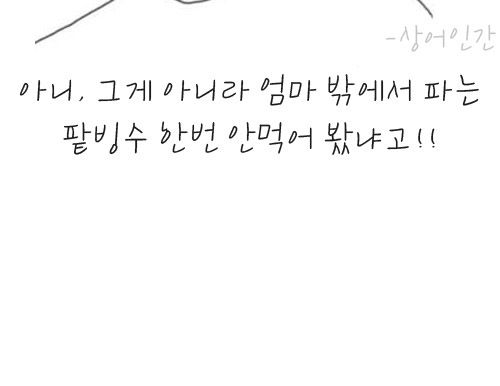 -상어인간
아니, 그게 아니라 엄마 밖에서 파는
팥빙수 한번 안먹어 봤냐고!!